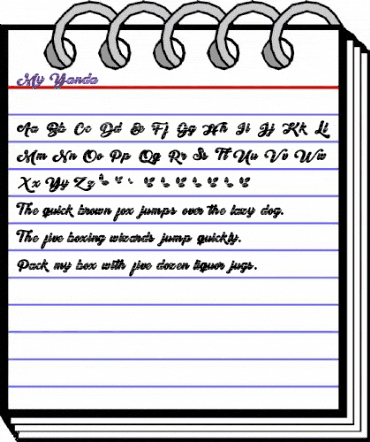 My Yanda
Aa Bb Cc Dd Ee Ff Gg Hh Ii Jj Kk Ll
Mm Nn Oo Pp Qq Rr Ss Tt Uu Vv Ww
Xx Yy Zz
The quick brown fox jumps over the lazy dog.
The five boxing wizards jump quickly.
Pack my box with five dozen liquor jugs.